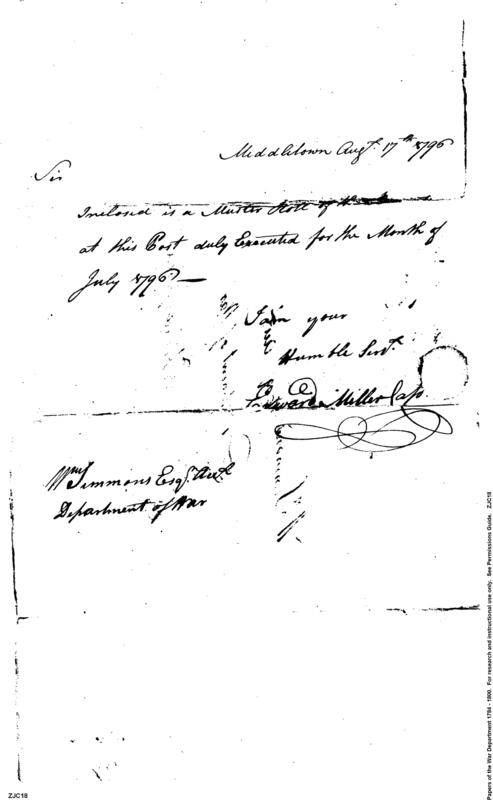 Middletown Augt. 17th 1796
Sir
Inclosed is a Muster Roll of the
at this Post duly Executed for the Month of
July 1796 —
I am your
Humble Servt.
Edward Miller Capt.
Wm Simmons Esqr. Acct.
Department of War
Papers of the War Department 1784 - 1800. For research and instructional use only. See Permissions Guide. ZJC18
ZJC18